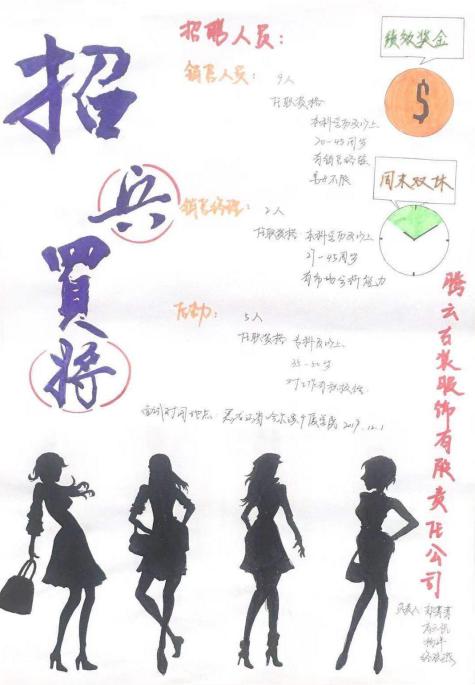 招
兵
買
将
招聘人员:
绩效奖金
$
销售人员: 9人
任职资格
本科学历及以上
20-45周岁
有销售经验
男女不限
周末双休
销售经理: 2人
任职资格 本科学历及以上
27-45周岁
有市场分析能力
后勤: 5人
任职资格 专科及以上
35-50岁
对工作有积极性
面试时间地点:黑龙江省哈尔滨
2019.12.1
腾云古装服饰有限责任公司
负责人